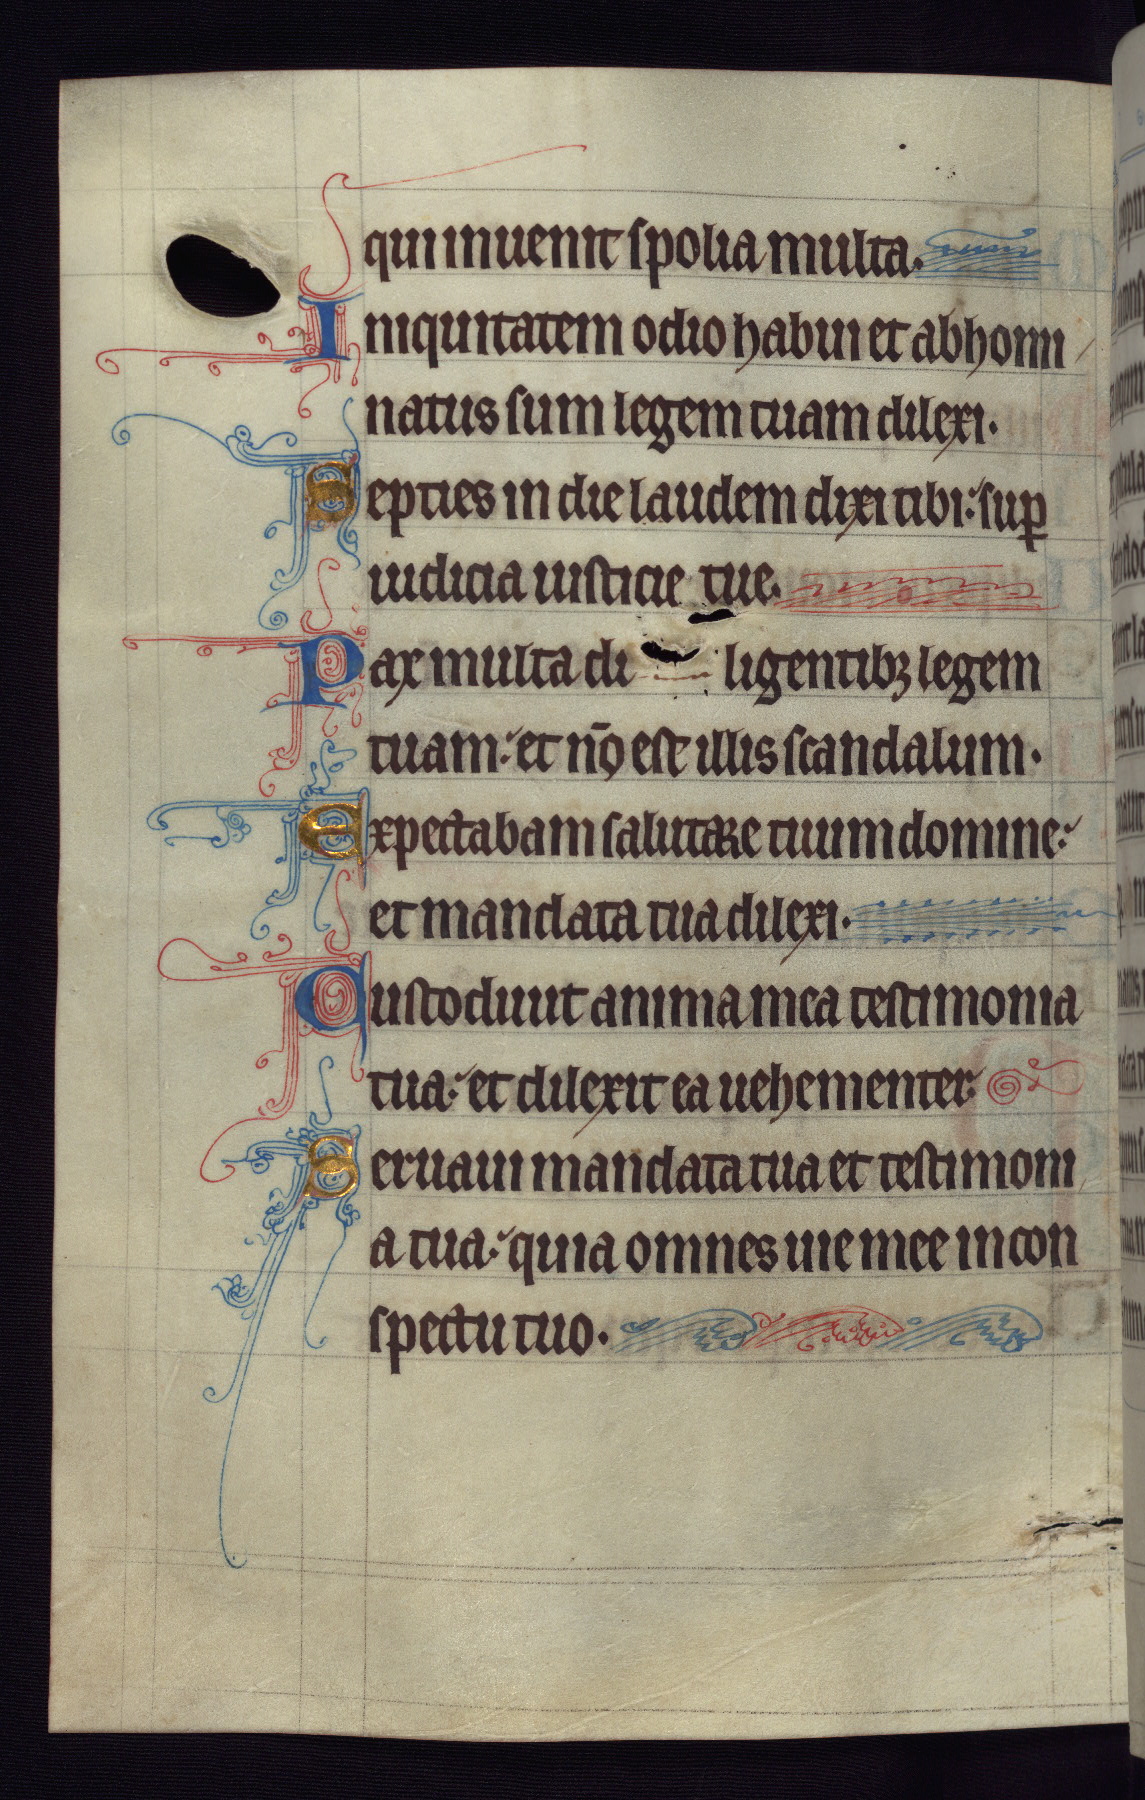 qui inuenit spolia multa.
Iniquitatem odio habui et abhomi
natus sum legem tuam dilexi.
Septies in die laudem dixi tibi: suꝑ
iudicia iusticie tue.
Pax multa di ligentibꝫ legem
tuam: et nō est illis scandalum.
Expectabam salutare tuum domine:
et mandata tua dilexi.
Custodiuit anima mea testimonia
tua: et dilexit ea uehementer.
Seruaui mandata tua et testimoni
a tua: quia omnes uie mee in con
spectu tuo.